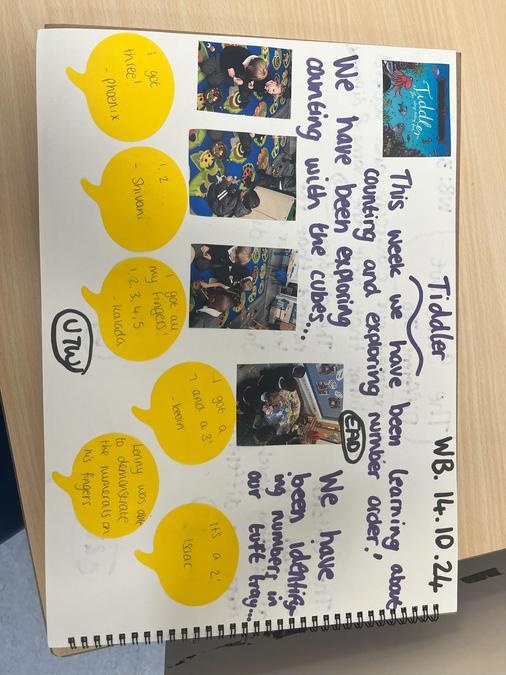 Tiddler
WB. 14.10.24
Tiddler
This week we have been learning about
counting and exploring number order!
We have been exploring
counting with the cubes...
EAD
We have
been identify-
ing numbers in
our tuff tray...
'I got
three!'
- phoenix
'1, 2 ...'
- Shivani
'I got all
my fingers!
1, 2, 3, 4, 5
- kalada
'I got a
7 and a 3'
- kevin
It's a 2'
- Isaac
Lenny was able
to demonstrate
the numerals on
his fingers
UTW